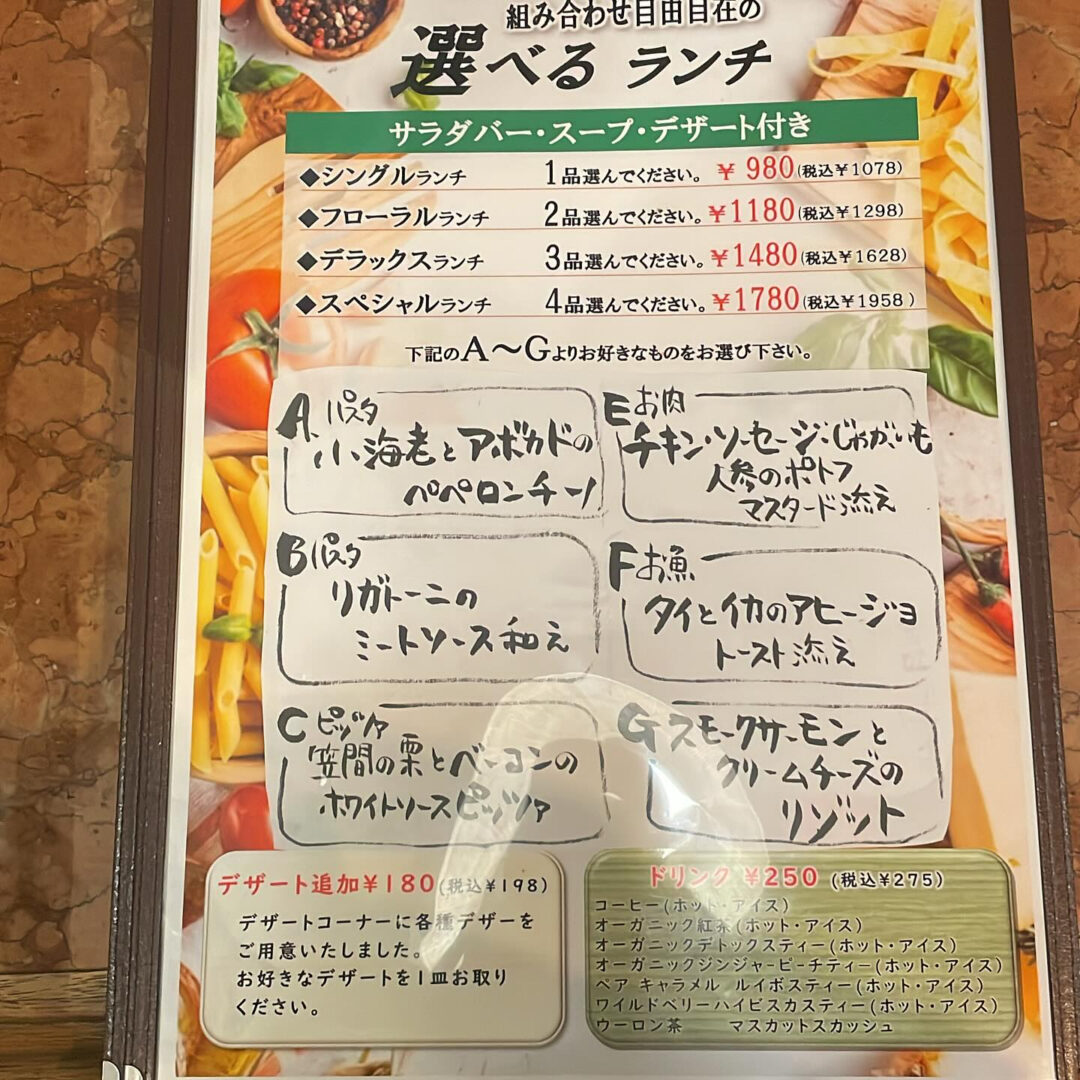 組み合わせ自由自在の
選べる ランチ
サラダバー・スープ・デザート付き
◆シングルランチ 1品選んでください。 ¥ 980(税込¥1078)
◆フローラルランチ 2品選んでください。¥1180(税込¥1298)
◆デラックスランチ 3品選んでください。¥1480(税込¥1628)
◆スペシャルランチ 4品選んでください。¥1780(税込¥1958)
下記のA〜Gよりお好きなものをお選び下さい。
A パスタ
小海老とアボカドの
ペペロンチーノ
B パスタ
リガトーニの
ミートソース和え
C ピッツァ
笠間の栗とベーコンの
ホワイトソースピッツァ
E お肉
チキン・ソーセージ・じゃがいも
人参のポトフ
マスタード添え
F お魚
タイとイカのアヒージョ
トースト添え
G スモークサーモンと
クリームチーズの
リゾット
デザート追加¥180(税込¥198)
デザートコーナーに各種デザーを
ご用意いたしました。
お好きなデザートを1皿お取り
ください。
ドリンク ¥250 (税込¥275)
コーヒー(ホット・アイス)
オーガニック紅茶(ホット・アイス)
オーガニックデトックスティー(ホット・アイス)
オーガニックジンジャーピーチティー(ホット・アイス)
ペア キャラメル ルイボスティー(ホット・アイス)
ワイルドベリーハイビスカスティー(ホット・アイス)
ウーロン茶 マスカットスカッシュ